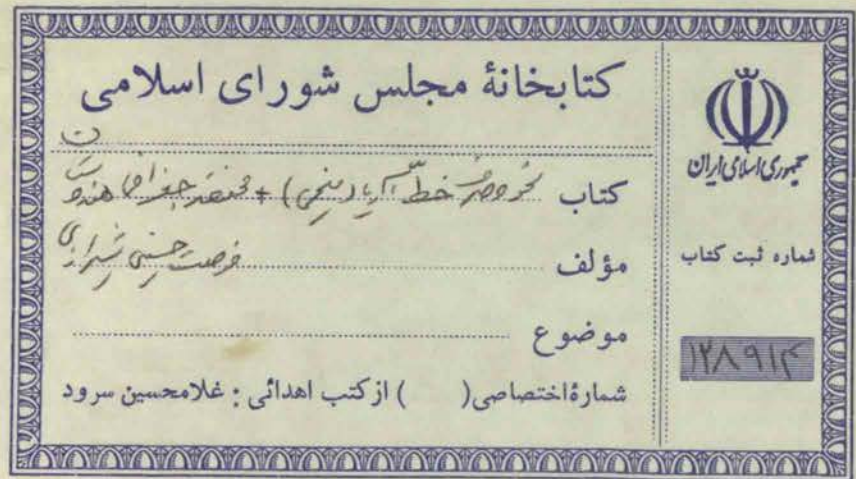 کتابخانهٔ مجلس شورای اسلامی
کتاب نحو و صرف خط آریا (میخی) + مختصر جغرافیا هندوستان
مؤلف فرصت حسینی شیرازی
موضوع
شمارهٔ اختصاصی( ) از کتب اهدائی : غلامحسین سرود
جمهوری اسلامی ایران
شماره ثبت کتاب
۱۲۸۹۱۴